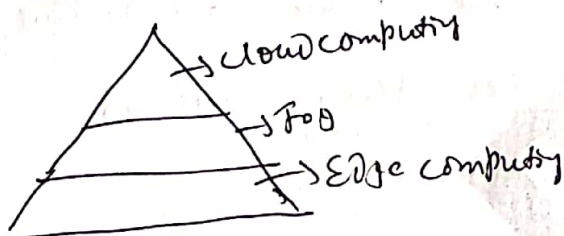 cloud computing
Fog
Edge computing